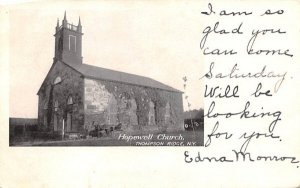 I am so
glad you
can come
Saturday.
Will be
looking
for you.
Edna Monroe
Hopewell Church,
THOMPSON RIDGE, N.Y.